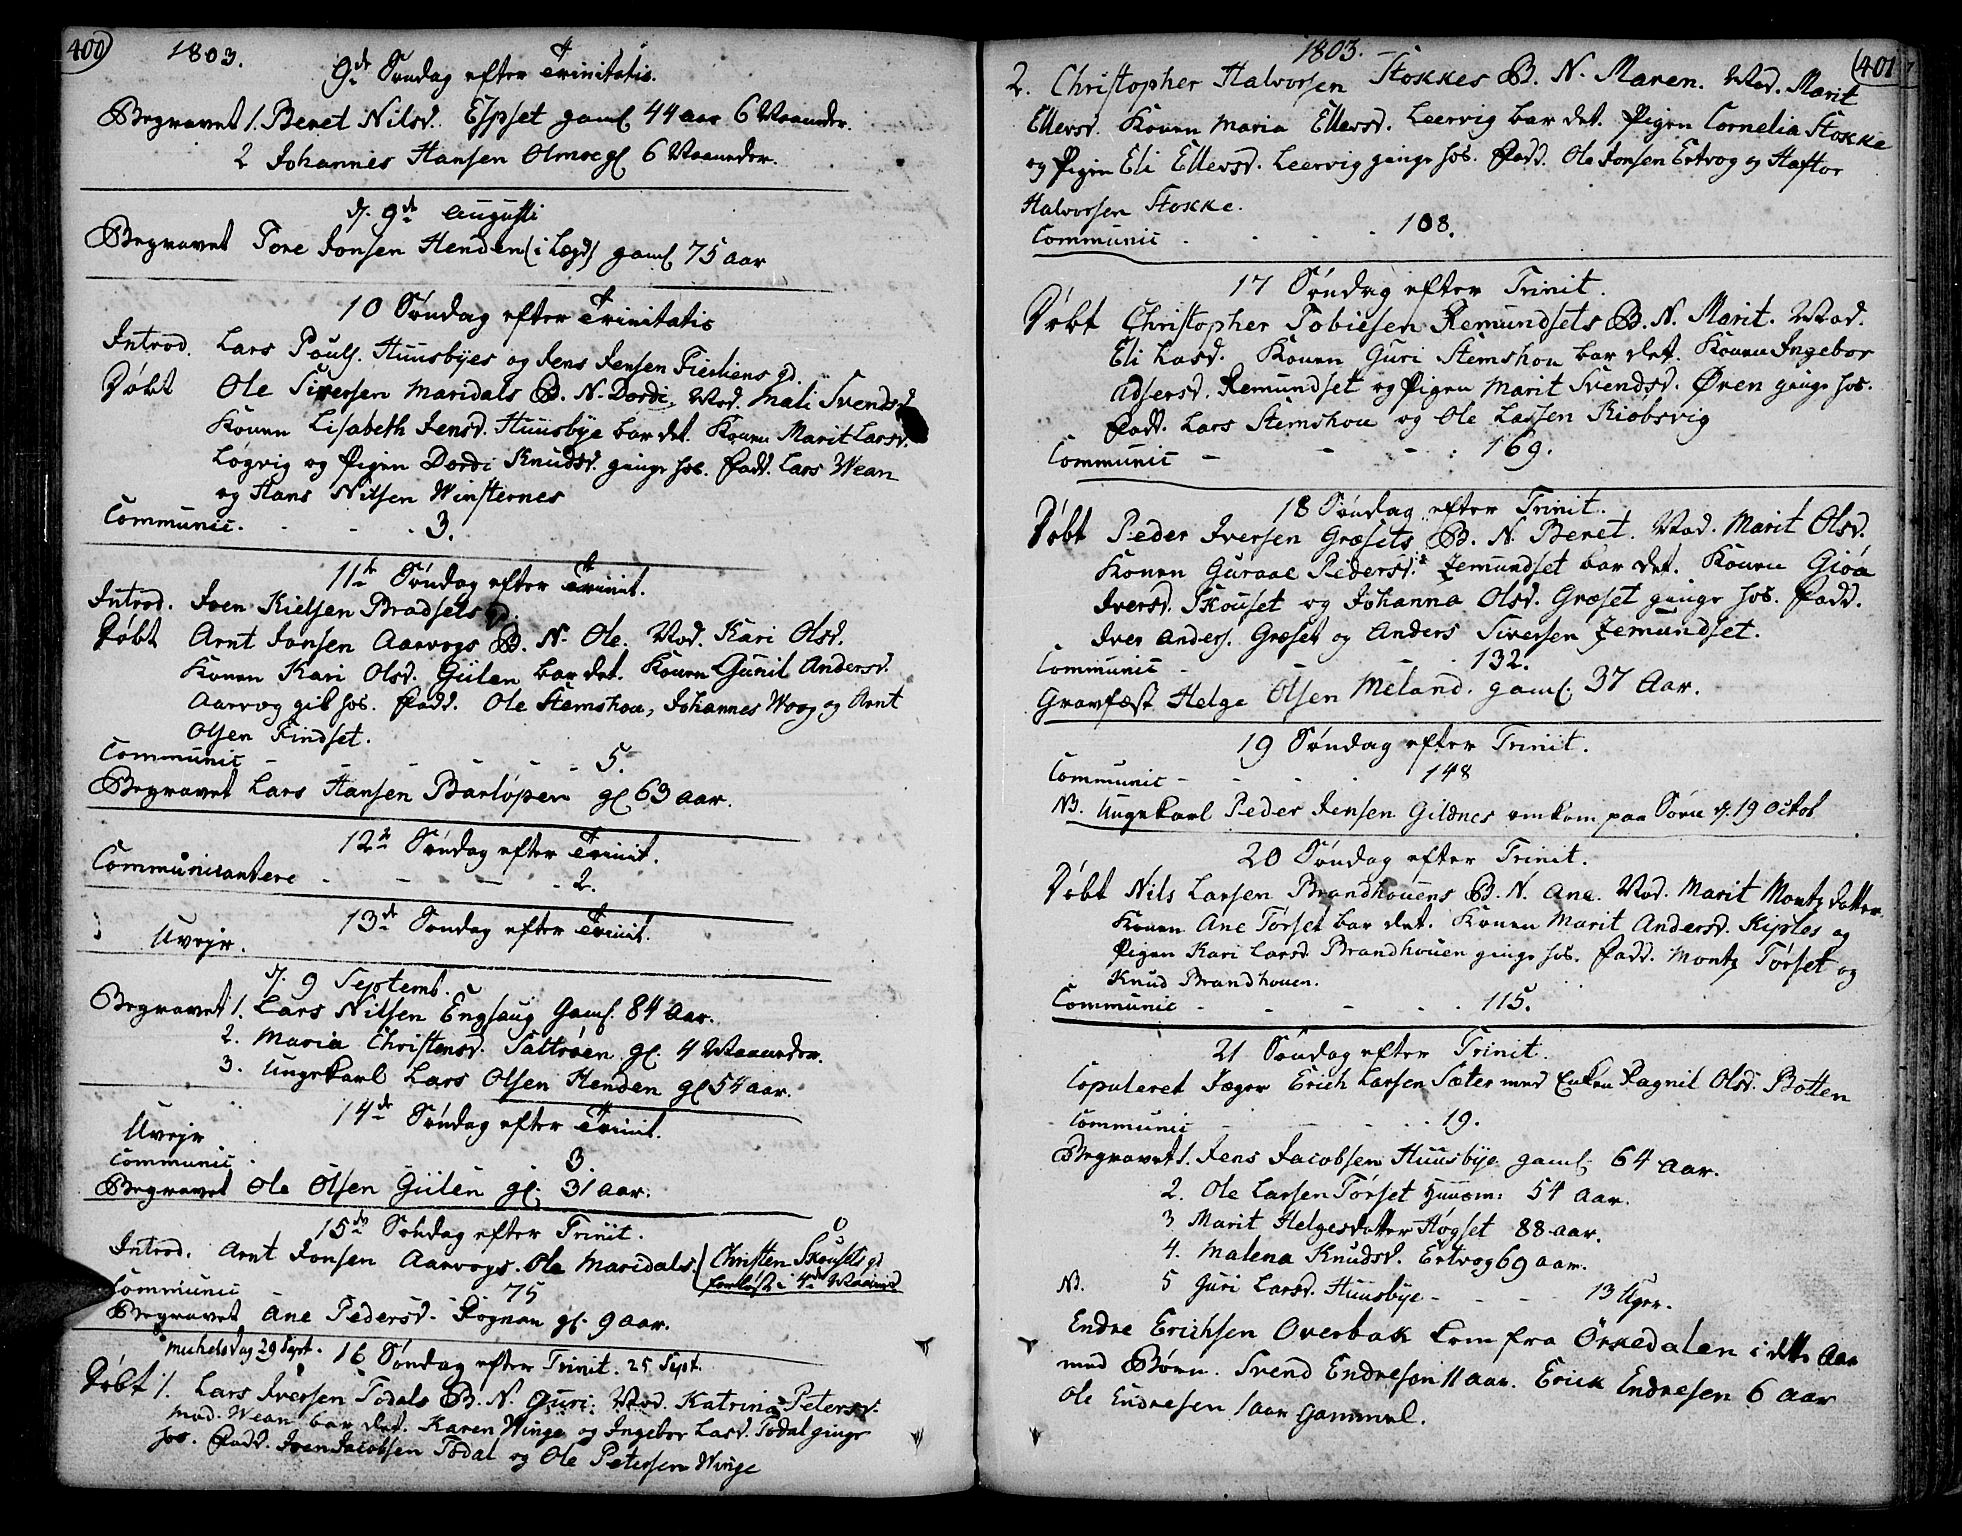 400
1803.
9de Søndag efter Trinitatis.
Begravet 1. Beret Nilsd. Espset gaml 44 aar 6 Maaneder.
2 Johannes Hansen Olmoe gl 6 Maaneder.
d. 9de Augusti
Begravet Tore Jonsen Henden (i Lægd) gaml 75 aar
10 Søndag efter Trinitatis
Introd. Lars Pouls. Huusbyes og Jens Jensen gd.
Døbt Ole Siversen Maridals B. N. Dordi. Mod. Mali Svendsd
Konen Lisabeth Jensd. Huusbye bar det. Konen Marit Larsd.
Løgvig og Pigen Dordi Knudsd. ginge hos. Fadd. Lars Wean
og Hans Nilsen Winsternes
Communic. - - - 3.
11te Søndag efter Trinit.
Introd. Iven Kielsen Bradsets gd.
Døbt Arnt Jonsen Aarvogs B. N. Ole. Mod. Kari Olsd.
Konen Kari Olsd. Giilen bar det. Konen Gunil Andersd.
Aarvog gik hos. Fadd. Ole Stemshou, Johannes Woog og Arnt
Olsen Findset.
Communic - - - - - 5.
Begravet Lars Hansen Barløpen gl 63 aar.
12te Søndag efter Trinit.
Communicantere - - - - 2.
13de Søndag efter Trinit.
Uvejr.
d. 9 Septemb.
Begravet 1. Lars Nilsen Engsaug Gaml. 84 Aar.
2. Maria Christensd. Saltrøen gl. 4 Maaneder.
3. Ungekarl Lars Olsen Henden gl 54 aar.
14de Søndag efter Trinit.
Uvejr
Communic - - 3.
Begravet Ole Olsen Giilen gl. 31 aar.
15de Søndag efter Triit.
Introd. Arnt Jonsen Aarvogs. Ole Maridals. (Christen Skousets gd
forløst i 4de Maaned
Communic 75
Begravet Ane Pedersd. Rognan gl. 9 aar.
Michelsdag 29 Sept. 16 Søndag efter Trinit. 25 Sept.
Døbt 1. Lars Iversen Todals B. N. Guri. Mod. Katrina Petersd.
Mad. Wean bar det. Karen Winge og Ingebor Lasd. Todal ginge
hos. Fadd. Iven Jacobsen Todal og Ole Petersen Winge
1803.
401
2. Christopher Halvorsen Stokkes B. N. Maren. Mod. Marit
Ellevsd. Konen Maria Ellevsd. Leervig bar det. Pigen Cornelia Stokke
og Pigen Eli Ellevsd. Leervig ginge hos. Fadd. Ole Jonsen Ertvog og Haftor
Halvorsen Stokke.
Communic - - - 108.
17 Søndag efter Trinit.
Døbt Christopher Tobiesen Remundsets B. N. Marit. Mod.
Eli Lasd. Konen Guri Stemshou bar det. Konen Ingebor
Adsersd. Remundset og Pigen Marit Svendsd. Øren ginge hos.
Fadd. Lars Stemshou og Ole Larsen Kiøbsvig
Communic - - - : 169.
18 Søndag efter Trinit.
Døbt Peder Iversen Græsets B. N. Beret. Mod. Marit Olsd.
Konen Guraae Pedersd. Jemundset bar det. Konen Giøa
Iversd. Skouset og Johanna Olsd. Græset ginge hos. Fadd.
Iver Anders. Græset og Anders Siversen Jemundset.
Communic - - - 132.
Gravfæst Helge Olsen Meland. gaml. 37 Aar.
19 Søndag efter Trinit.
Communic - - - - 148
NB. Ungekarl Peder Jensen Gildnes omkom paa Søen d. 19 Octob
20 Søndag efter Trinit.
Døbt Nils Larsen Brandhouens B. N. Ane. Mod. Marit Montzdatter.
Konen Ane Tørset bar det. Konen Marit Andersd. Kiples og
Pigen Kari Larsd. Brandhouen ginge hos. Fadd. Montz Tørset og
Knud Brandhouen.
Communic - - - - 115.
21 Søndag efter Trinit.
Copuleret Jæger Erich Larsen Sæter med Enken Ragnil Olsd. Botten
Communic - - - 19.
Begravet 1. Jens Jacobsen Huusbye gaml. 64 aar.
2. Ole Larsen Tørset Huusm: 54 aar.
3 Marit Helgesdatter Høgset 88 aar.
4. Malena Knudsd. Ertvog 69 aar.
NB. 5 Guri Larsd. Huusbye - - - 13 Uger.
Endre Erichsen Overbak kom fra Örkedalen i dette Aar
med Børn. Svend Endresøn 11 aar. Erick Endresen 6 aar
Ole Endresen 1 aar Gammel.